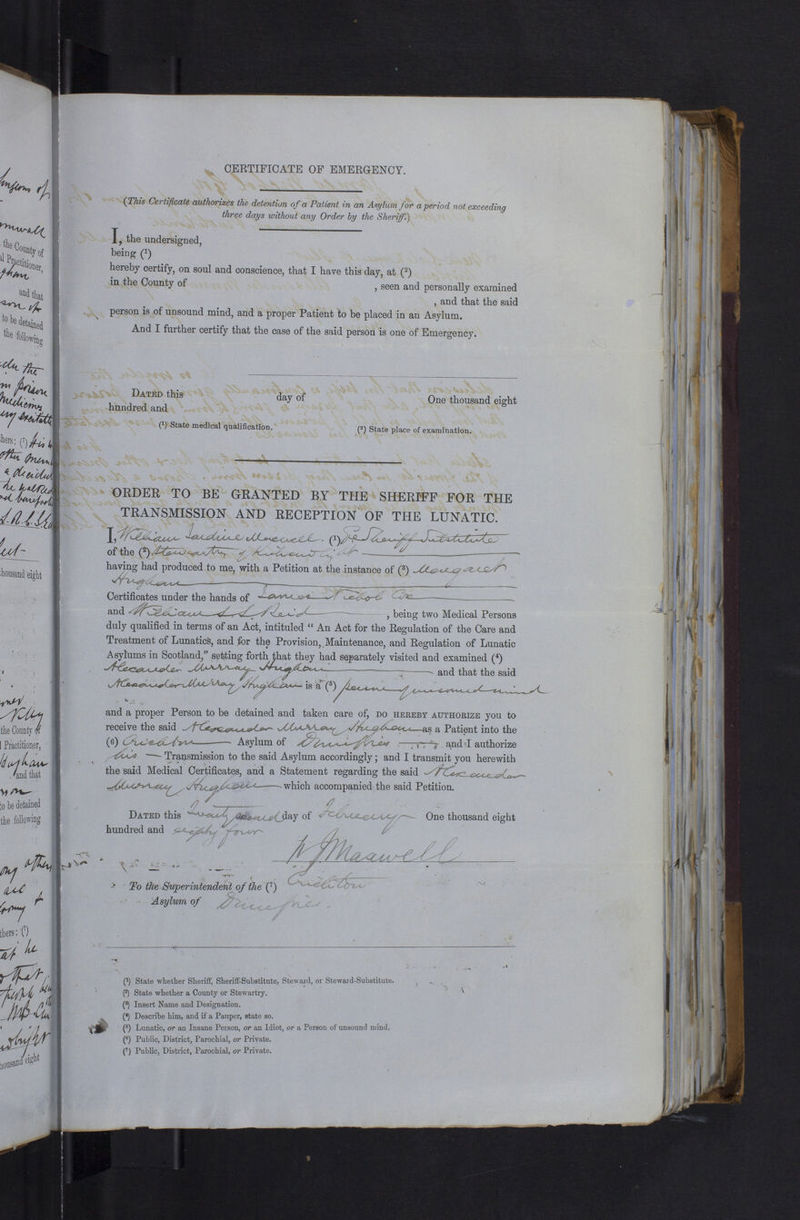 CERTIFICATE OF EMERGENCY.
(This Certificate authorizes the detention of a Patient in an Asylum for a period not exceeding
three days without any Order by the Sheriff.)
I, the undersigned,
being (1)
hereby certify, on soul and conscience, that I have this day, at (2)
in the County of , seen and personally examined
, and that the said
person is of unsound mind, and a proper Patient to be placed in an Asylum.
And I further certify that the case of the said person is one of Emergency.
DATED this day of One thousand eight
hundred and
(1) State medical qualification. (2) State place of examination.
ORDER TO BE GRANTED BY THE SHERIFF FOR THE
TRANSMISSION AND RECEPTION OF THE LUNATIC.
I, William Jardine Maxwell (1) Sheriff Substitute
of the (2) Stewartry of Kirkcudbright
having had produced to me, with a Petition at the instance of (3) Margaret
Hughan
Certificates under the hands of James Nichol
and William Reid , being two Medical Persons
duly qualified in terms of an Act, intituled “ An Act for the Regulation of the Care and
Treatment of Lunatics, and for the Provision, Maintenance, and Regulation of Lunatic
Asylums in Scotland,” setting forth that they had separately visited and examined (4)
Alexander Murray Hughan and that the said
Alexander Murray Hughan is a (5) person of unsound mind
and a proper Person to be detained and taken care of, DO HEREBY AUTHORIZE you to
receive the said Alexander Murray Hughan as a Patient into the
(6) Crichton Asylum of Dumfries and I authorize
his Transmission to the said Asylum accordingly; and I transmit you herewith
the said Medical Certificates, and a Statement regarding the said Alexander
Murray Hughan which accompanied the said Petition.
DATED this twenty second day of February One thousand eight
hundred and eighty four
W J Maxwell
To the Superintendent of the (7) Crichton
Asylum of Dumfries.
(1) State whether Sheriff, Sheriff-Substitute, Steward, or Steward-Substitute.
(2) State whether a County or Stewartry.
(3) Insert Name and Designation.
(4) Describe him, and if a Pauper, state so.
(5) Lunatic, or an Insane Person, or an Idiot, or a Person of unsound mind.
(6) Public, District, Parochial, or Private.
(7) Public, District, Parochial, or Private.